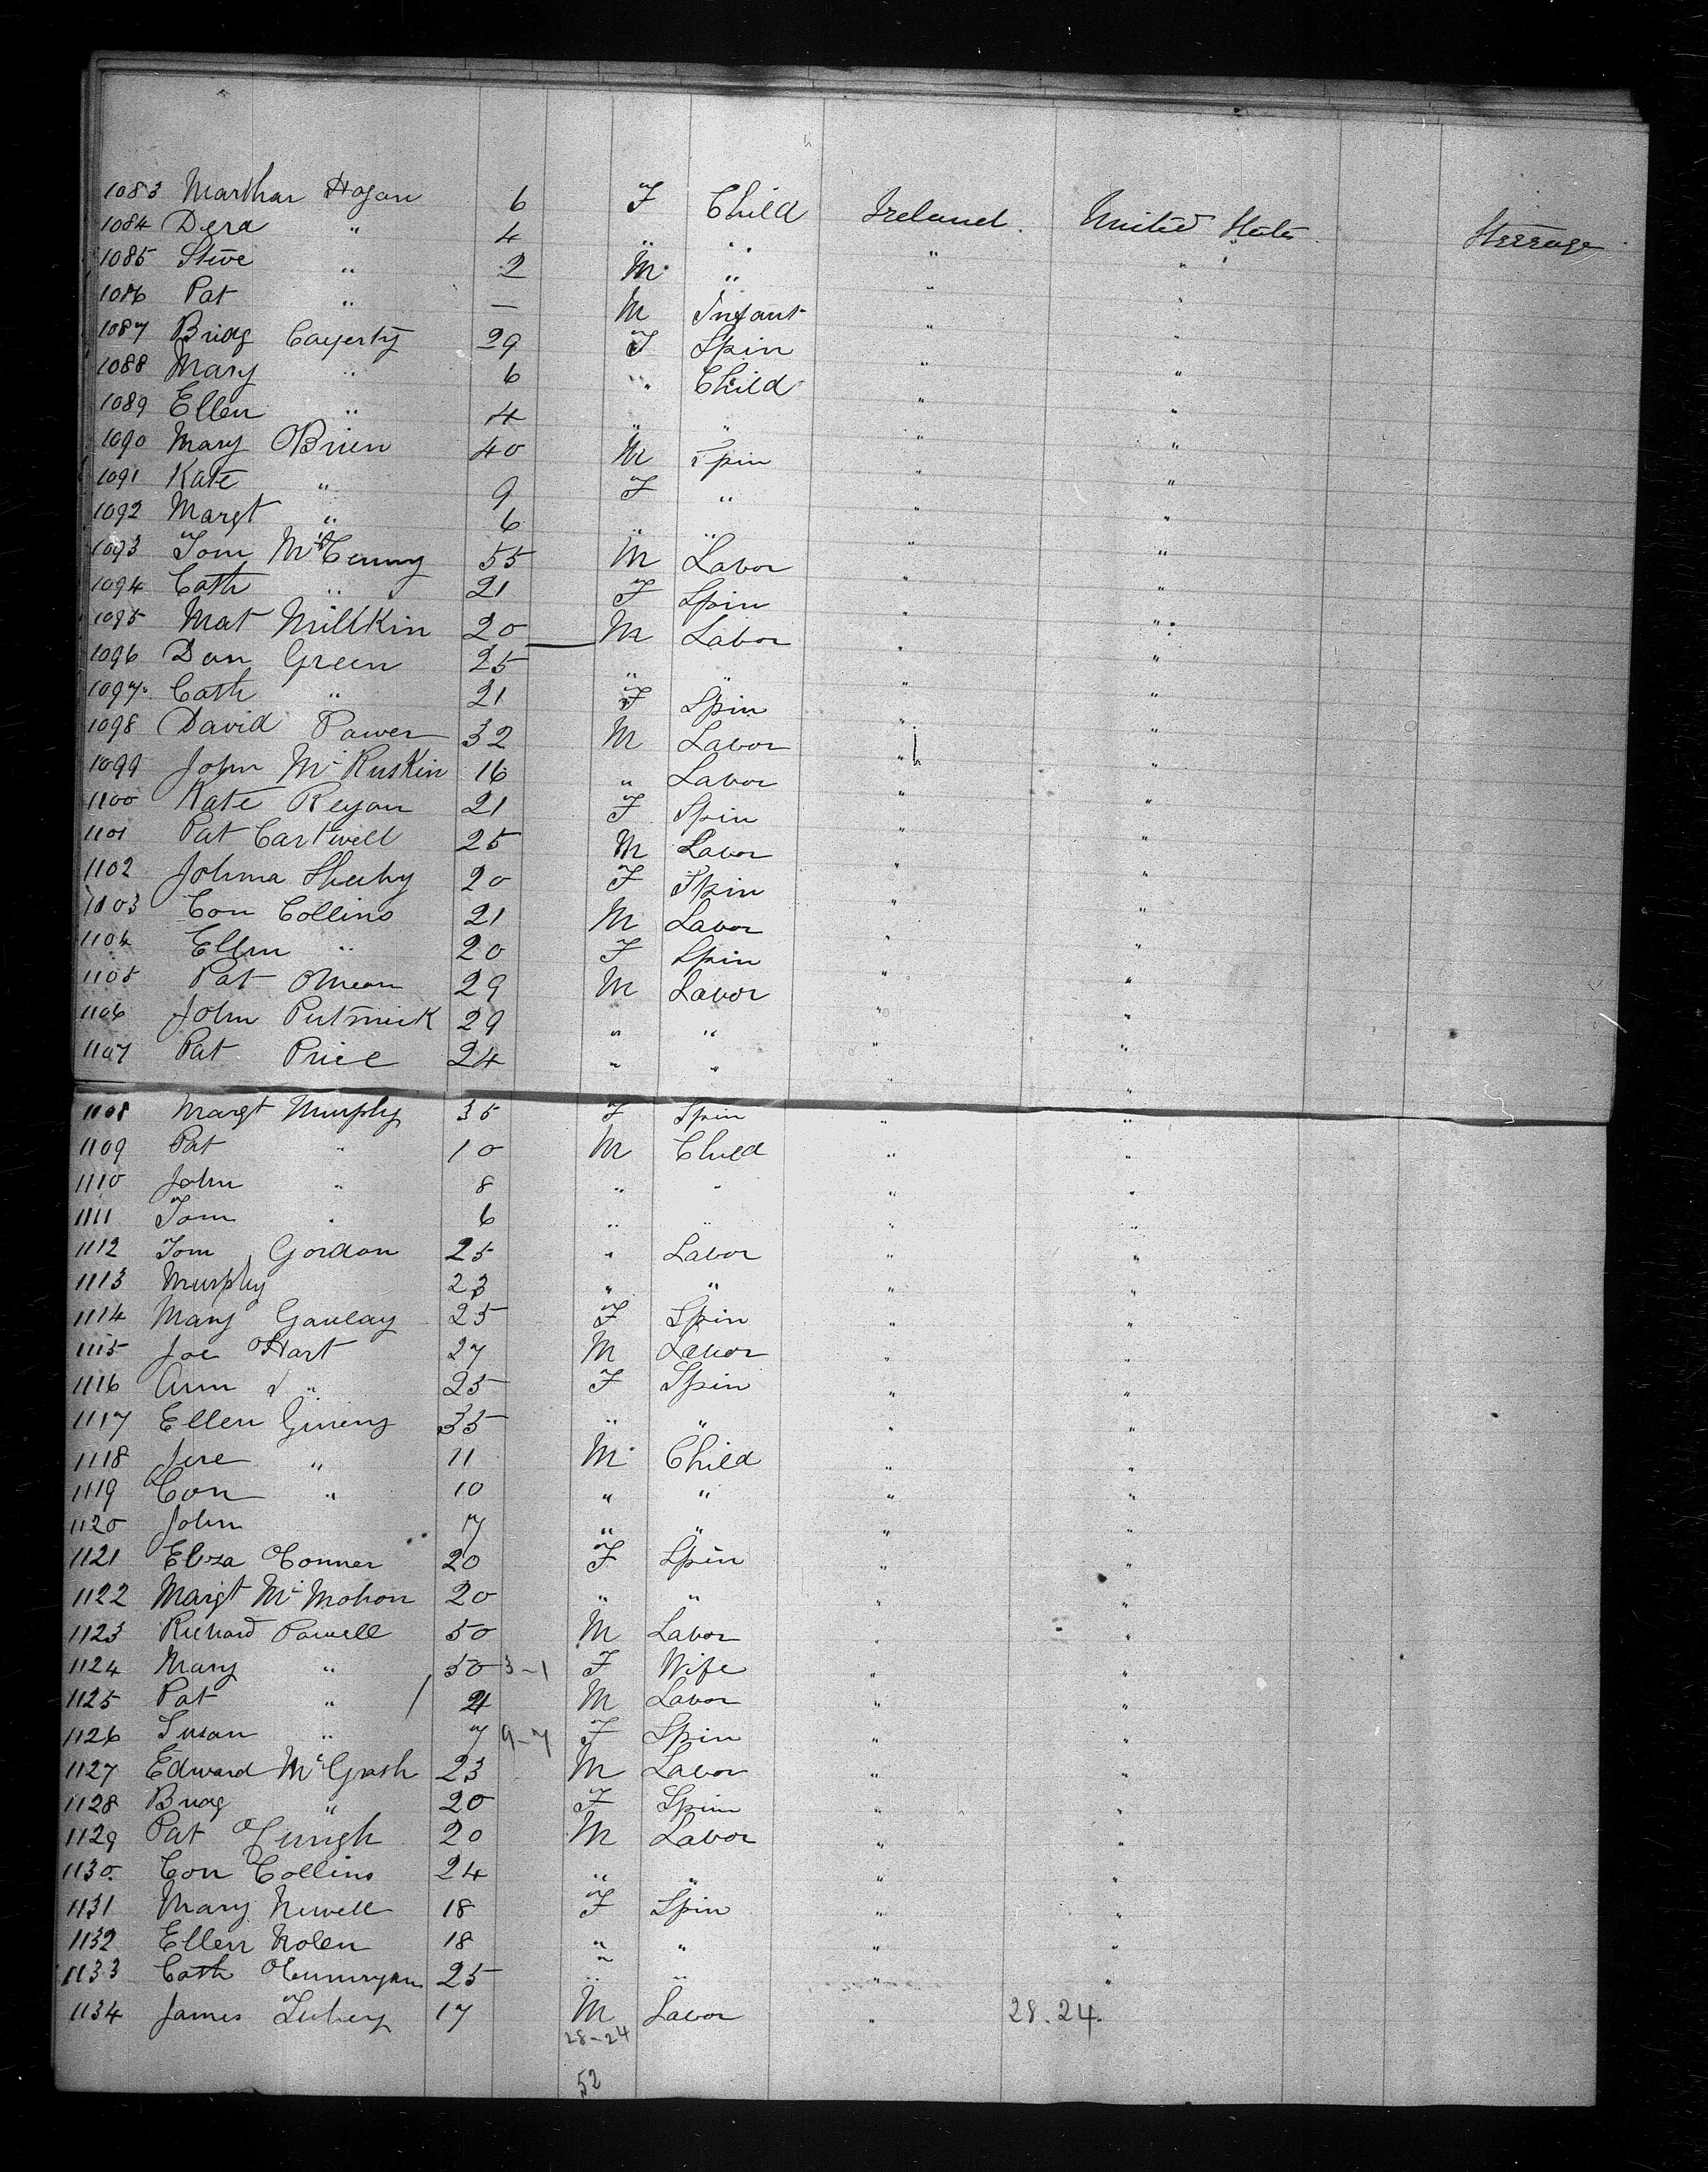 1083 Marthar Hogan 6 F Child Ireland. United States Steerage
1084 Dera " 4 " " " "
1085 Steve " 2 M " " "
1086 Pat " — M Infant " "
1087 Bridg Cayerty 29 F Spin " "
1088 Mary " 6 " Child " "
1089 Ellen " 4 " " " "
1090 Mary OBrien 40 M Spin " "
1091 Kate " 9 F " " "
1092 Margt " 6 " " " "
1093 Tom 55 M Labor " "
1094 Cath " 21 F Spin " "
1095 Mat Millkin 20 M Labor " "
1096 Dan Green 25 " " " "
1097 Cath " 21 F Spin " "
1098 David Power 32 M Labor " "
1099 John McRuskin 16 " Labor " "
1100 Kate Reyan 21 F Spin " "
1101 Pat Cartwell 25 M Labor " "
1102 Johma Sheehy 20 F Spin " "
1103 Con Collins 21 M Labor " "
1104 Ellen " 20 F Spin " "
1105 Pat OMean 29 M Labor " "
1106 John 29 " " " "
1107 Pat Price 24 " " " "
1108 Margt Murphy 35 F Spin " "
1109 Pat " 10 M Child " "
1110 John " 8 " " " "
1111 Tom " 6 " " " "
1112 Tom Gordon 25 " Labor " "
1113 Murphy 23 " " " "
1114 Mary Gaulay 25 F Spin " "
1115 Joe Hart 27 M Labor " "
1116 Ann " 25 F Spin " "
1117 Ellen 35 " " " "
1118 Jere " 11 M Child " "
1119 Con " 10 " " " "
1120 John 7 " " " "
1121 Eliza Conner 20 F Spin " "
1122 Margt McMohon 20 " " " "
1123 Richard Powell 50 M Labor " "
1124 Mary " 50 3-1 F Wife " "
1125 Pat " / 4 M Labor " "
1126 Susan " 7 9-7 F Spin " "
1127 Edward McGrath 23 M Labor " "
1128 Bridg " 20 F Spin " "
1129 Pat 20 M Labor " "
1130. Con Collins 24 " " " "
1131 Mary Newell 18 F Spin " "
1132 Ellen Nolen 18 " " " "
1133 Cath 25 " " " "
1134 James 17 M Labor " 28.24.
28-24
52